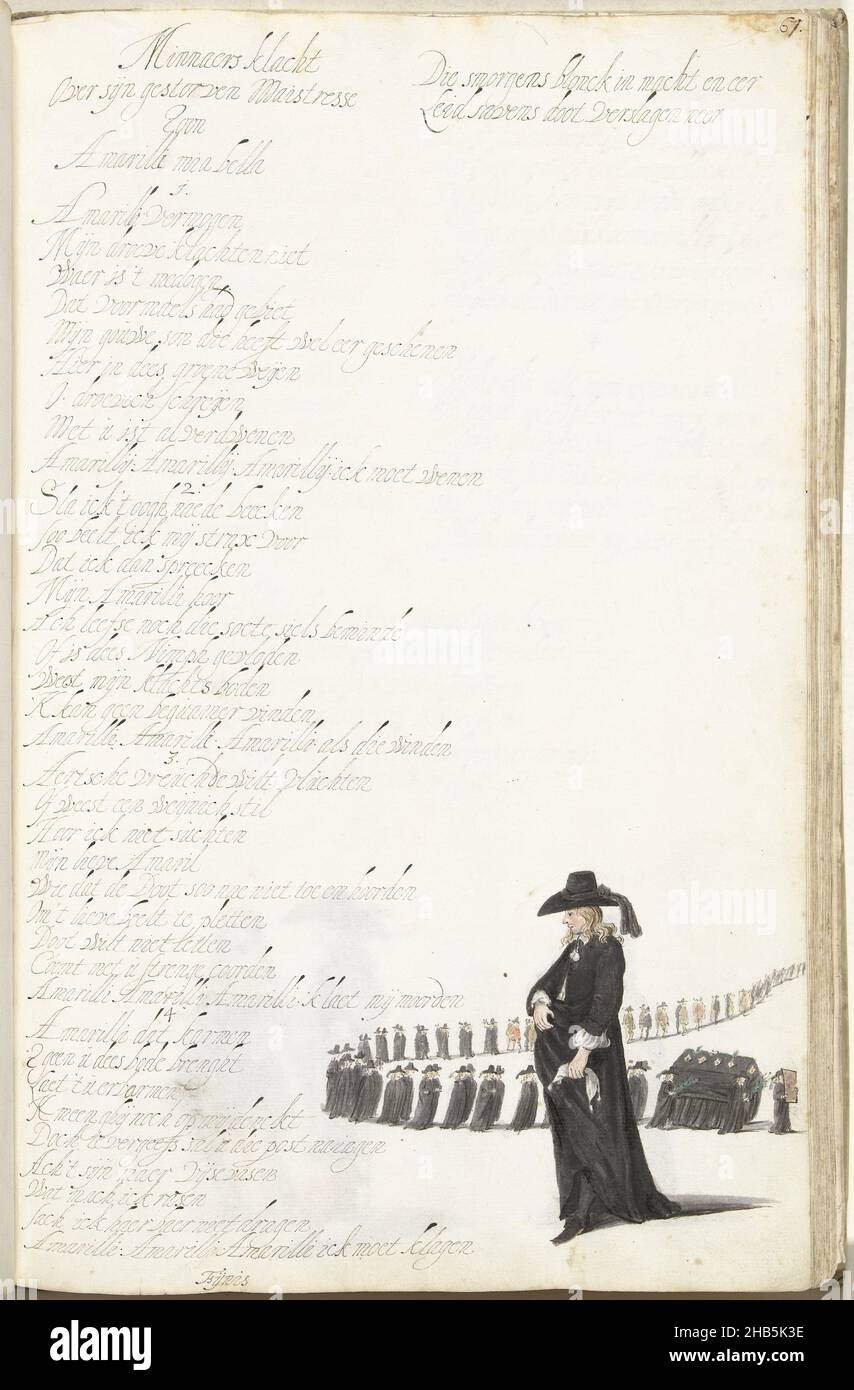 61.
Minnaers klacht
Over sijn gestorven Maistresse
Toon
Amarilli mia bella
Die smorgens blonck in macht en eer
Leid savens doot verslagen neer
1.
Amarilli vermogen
Mijn droeve klachten niet
Waer is't medogen
Dat voormaels had gebiet
Mijn gouwe son die heeft wel eer geschenen
Hier in dees groene weijen
O droevich schreijen
Met u ist al verdwenen
Amarillij Amarillij Amarillij ick moet wenen
2.
Sla ick t oogh nae de beecken
Soo beelt ick mij strax voor
Dat ick aan spreecken
Mijn Amarilli hoor
Ach leefse noch die soete siels beminde
Of is dees Nimph gevloden
Weest mijn klachts boden
K kan geen bequamer vinden
Amarilli Amarilli Amarilli als die winden
3.
Aertsche vreuchde wilt vluchten
Of weest een weijnich stil
Hoor ick niet suchten
Mijn lieve Amaril
Wie dat de Doot soo nae niet toe en hoorden
Om't lieve velt te pletten
Doot wilt niet letten
Comt met u strenge coorden
Amarilli Amarilli Amarilli k laet mij moorden
4.
Amarilli dat karmen
T geen u dees bode brenght
Laet t u erbarmen
K meen ghij noch op mij denckt
Doch te vergeefs sal u die post naiagen
Ach't sijn maer vijse vasen
Wat mach ick rasen
Sach ick haer daer niet dragen
Amarilli Amarilli Amarilli ick moet klagen
Fijnis
alamy
alamy
alamy
alamy
Image ID: 2HB5K3E
www.alamy.com